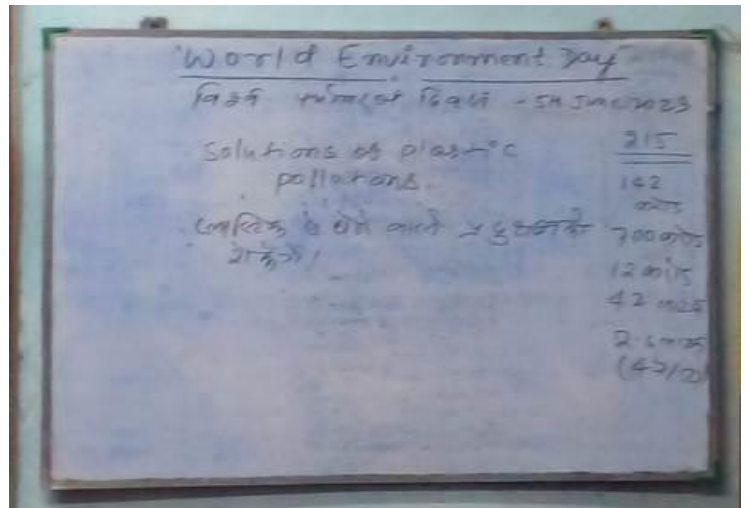 "World Environment Day"
विश्व पर्यावरण दिवस - 5th June 2023
Solutions of plastic
pollutions.
प्लास्टिक से होने वाले प्रदुषण को
रोकेंगे।
215
142
करोड
700 करोड
12 करोड
42
(42/2)